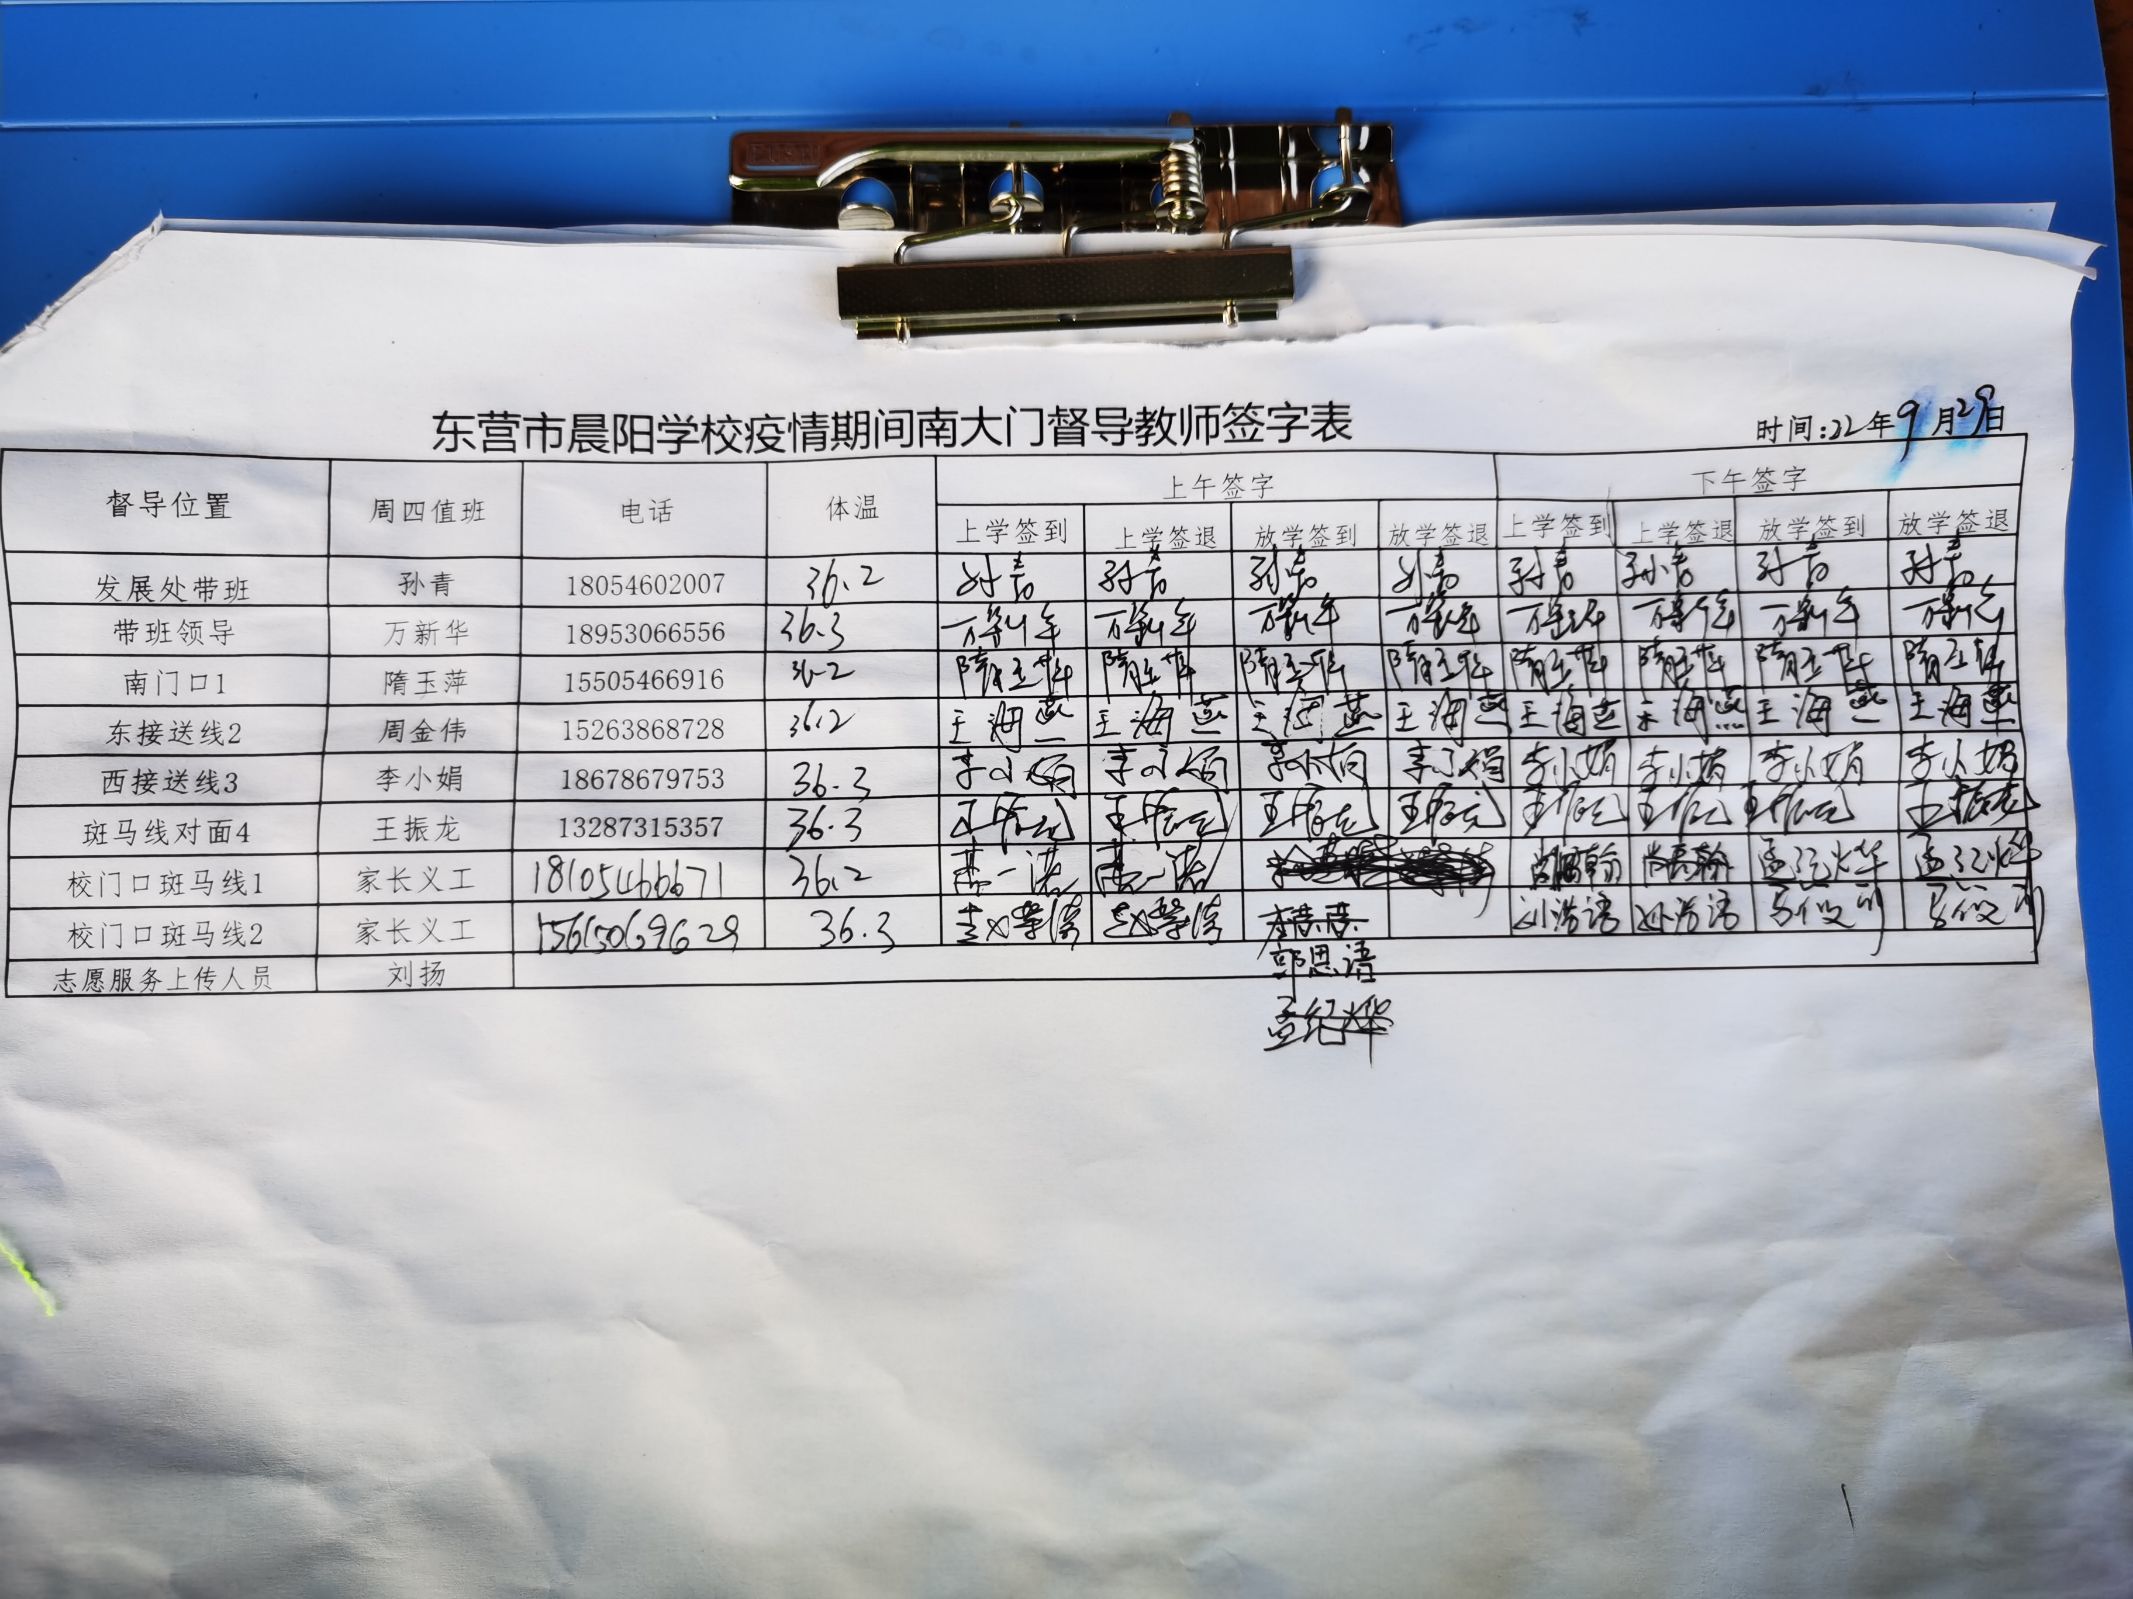 东营市晨阳学校疫情期间南大门督导教师签字表
时间:22年9月29日
督导位置 周四值班 电话 体温 上午签字 下午签字
上学签到 上学签退 放学签到 放学签退 上学签到 上学签退 放学签到 放学签退
发展处带班 孙青 18054602007 36.2 孙青 孙青 孙青 孙青 孙青 孙青 孙青 孙青
带班领导 万新华 18953066556 36.3 万新华 万新华 万新华 万新华 万新华 万新华 万新华 万新华
南门口1 隋玉萍 15505466916 36.2 隋玉萍 隋玉萍 隋玉萍 隋玉萍 隋玉萍 隋玉萍 隋玉萍 隋玉萍
东接送线2 周金伟 15263868728 36.2 王海燕 王海燕 王海燕 王海燕 王海燕 王海燕 王海燕 王海燕
西接送线3 李小娟 18678679753 36.3 李小娟 李小娟 李小娟 李小娟 李小娟 李小娟 李小娟 李小娟
斑马线对面4 王振龙 13287315357 36.3 王振龙 王振龙 王振龙 王振龙 王振龙 王振龙 王振龙 王振龙
校门口斑马线1 家长义工 18105466671 36.2 孟纪烨 孟纪烨
校门口斑马线2 家长义工 15615069629 36.3
郭思语
志愿服务上传人员 刘扬
孟纪烨